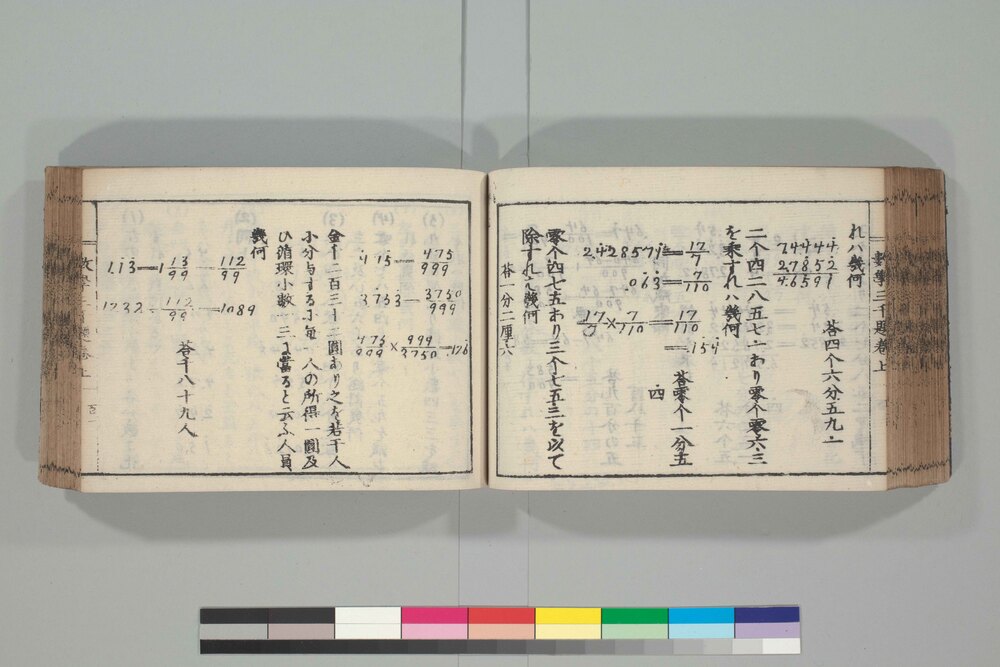 れハ幾何
7.4444
2.7852
4.6591
答四个六分五九一
二个四二八五七一あり零个零六三
を乗すれハ幾何
2.428571=17/7
.063=7/110
17/7×7/110=17/110
=.154
答零个一分五
四
零个四七五あり三个七五三を以て
除すれハ幾何
答一分二厘六
.475=475/999
3.753=3750/999
475/999×999/3750=.126
金千二百三十二圓あり之を若干人
小分与するに毎一人の所得一圓及
ひ循環小数一三に當ると云ふ人員
幾何
1.13=1 13/99=112/99
1232÷112/99=1089
答千八十九人
數學三千題卷上